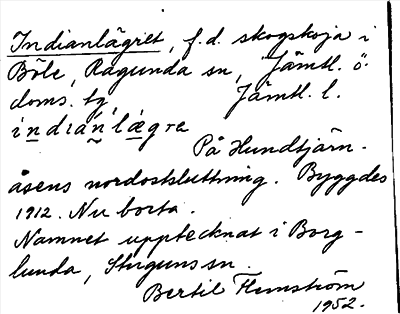 Indianlägret, f.d. skogskoja i
Böle, Ragunda sn, Jämtl. ö.
doms. tg, Jämtl. l.
indianlägre
På Hundtjärn-
åsens nordostsluttning. Byggdes
1912. Nu borta.
Namnet upptecknat i Borg-
lunda, Stuguns sn.
Bertil Flemström
1952.